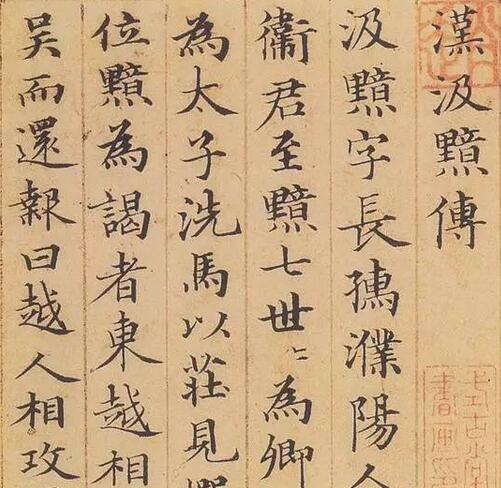 漢汲黯傳
汲黯字長孺濮陽人
衛君至黯七世〻為卿
為太子洗馬以莊見
位黯為謁者東越相
吳而還報曰越人相攻